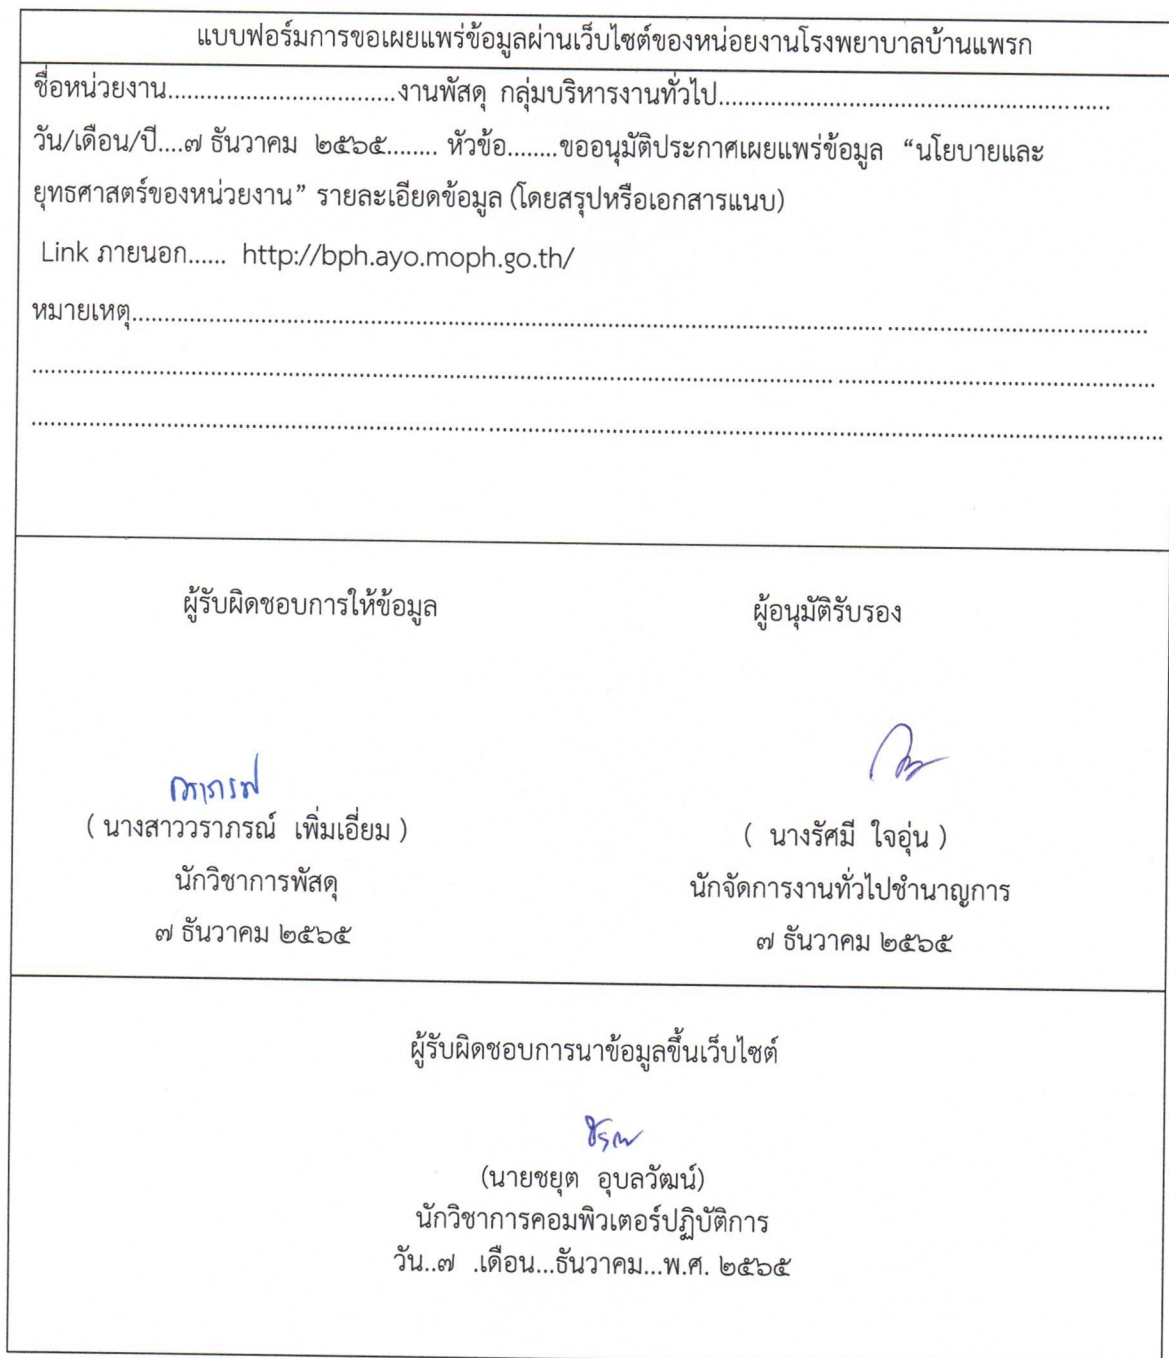 แบบฟอร์มการขอเผยแพร่ข้อมูลผ่านเว็บไซต์ของหน่อยงานโรงพยาบาลบ้านแพรก
ชื่อหน่วยงาน....................................งานพัสดุ กลุ่มบริหารงานทั่วไป..............................................................
วัน/เดือน/ปี....๗ ธันวาคม ๒๕๖๕........ หัวข้อ........ขออนุมัติประกาศเผยแพร่ข้อมูล “นโยบายและ
ยุทธศาสตร์ของหน่วยงาน” รายละเอียดข้อมูล (โดยสรุปหรือเอกสารแนบ)
Link ภายนอก...... http://bph.ayo.moph.go.th/
หมายเหตุ..............................................................................................................................
ผู้รับผิดชอบการให้ข้อมูล ผู้อนุมัติรับรอง
วราภรณ์
( นางสาววราภรณ์ เพิ่มเอี่ยม ) ( นางรัศมี ใจอุ่น )
นักวิชาการพัสดุ นักจัดการงานทั่วไปชำนาญการ
๗ ธันวาคม ๒๕๖๕ ๗ ธันวาคม ๒๕๖๕
ผู้รับผิดชอบการนาข้อมูลขึ้นเว็บไซต์
(นายชยุต อุบลวัฒน์)
นักวิชาการคอมพิวเตอร์ปฏิบัติการ
วัน..๗ .เดือน...ธันวาคม...พ.ศ. ๒๕๖๕